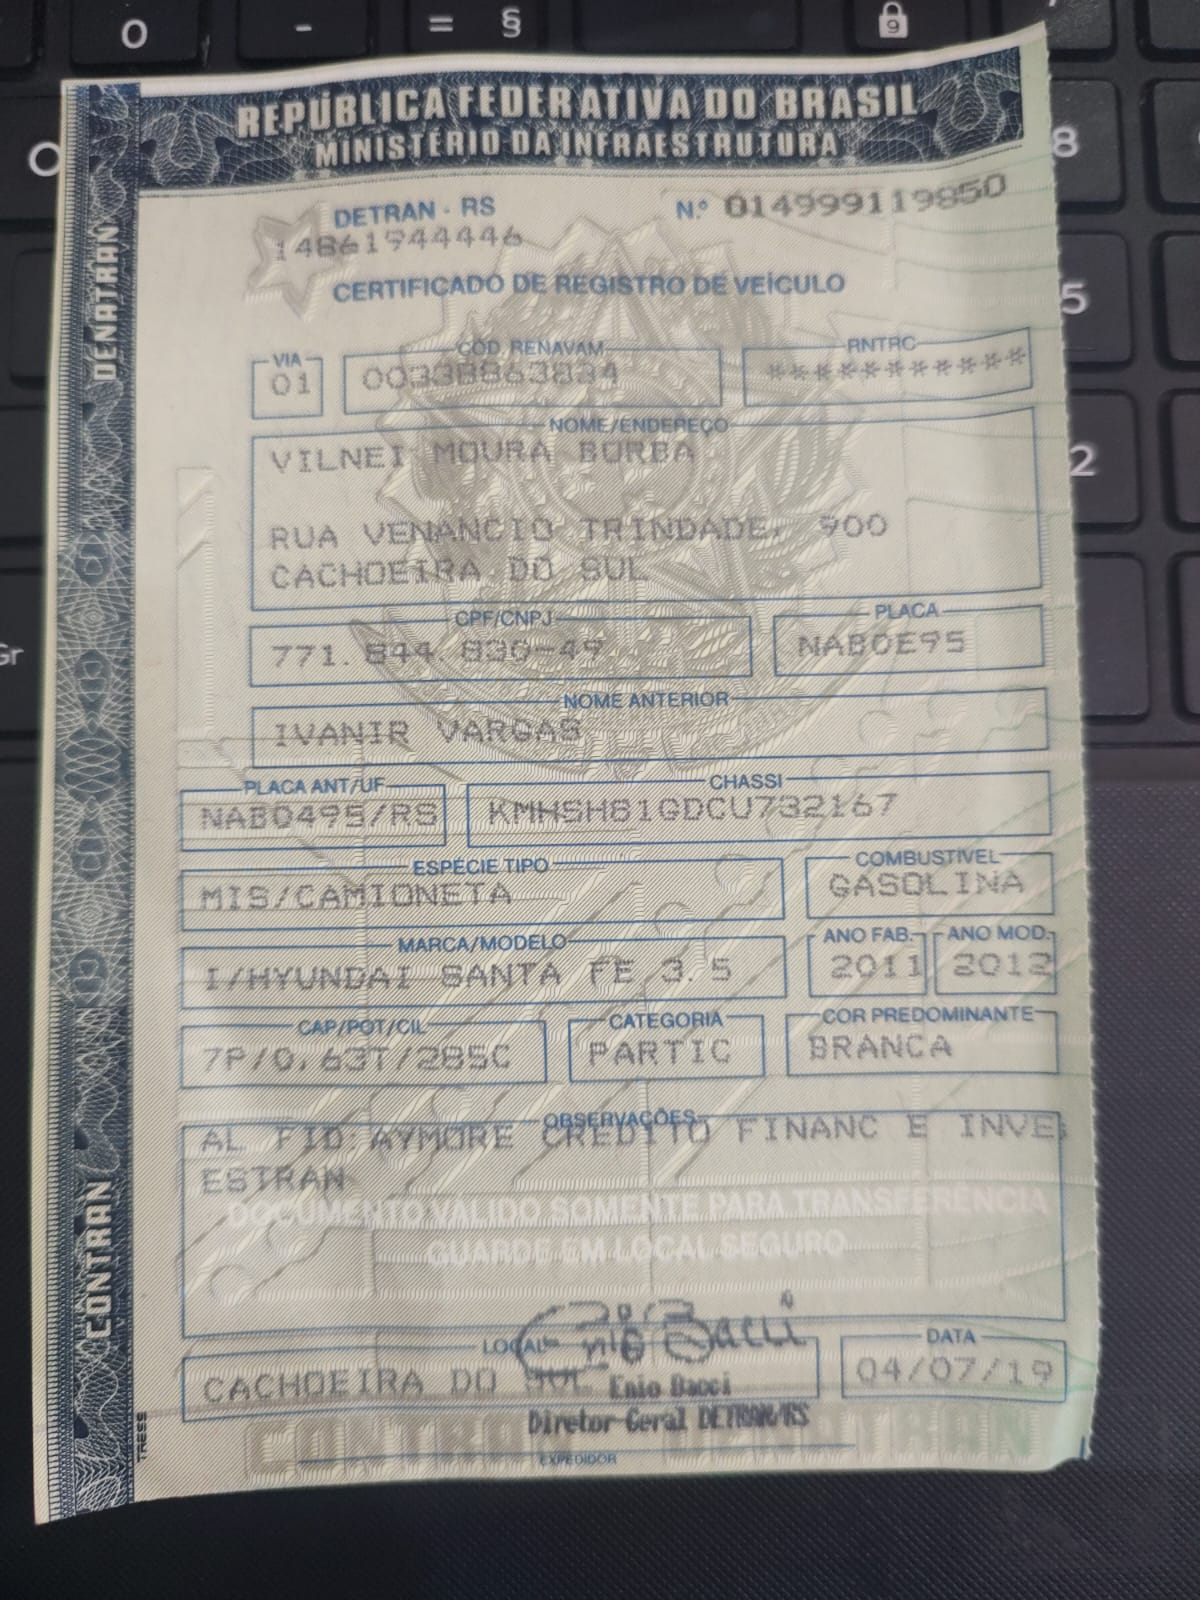 REPÚBLICA FEDERATIVA DO BRASIL
MINISTÉRIO DA INFRAESTRUTURA
DENATRAN
CONTRAN
DETRAN - RS
Nº 014999119850
14861944446
CERTIFICADO DE REGISTRO DE VEÍCULO
VIA
01
CÓD. RENAVAM
00338863834
RNTRC
***********
NOME/ENDEREÇO
VILNEI MOURA BORBA
RUA VENANCIO TRINDADE, 900
CACHOEIRA DO SUL
CPF/CNPJ
771.844.830-49
PLACA
NAB0E95
NOME ANTERIOR
IVANIR VARGAS
PLACA ANT/UF
NAB0495/RS
CHASSI
KMHSH81GDCU732167
ESPÉCIE TIPO
MIS/CAMIONETA
COMBUSTÍVEL
GASOLINA
MARCA/MODELO
I/HYUNDAI SANTA FE 3.5
ANO FAB.
2011
ANO MOD.
2012
CAP/POT/CIL
7P/0,63T/285C
CATEGORIA
PARTIC
COR PREDOMINANTE
BRANCA
OBSERVAÇÕES
AL FID:AYMORE CREDITO FINANC E INVE
ESTRAN
DOCUMENTO VÁLIDO SOMENTE PARA TRANSFERÊNCIA
GUARDE EM LOCAL SEGURO
LOCAL
CACHOEIRA DO SUL
DATA
04/07/19
Enio Bacci
Diretor Geral DETRAN/RS
EXPEDIDOR
CONTRAN DENATRAN
0
-
=
§
9
8
5
2
Gr